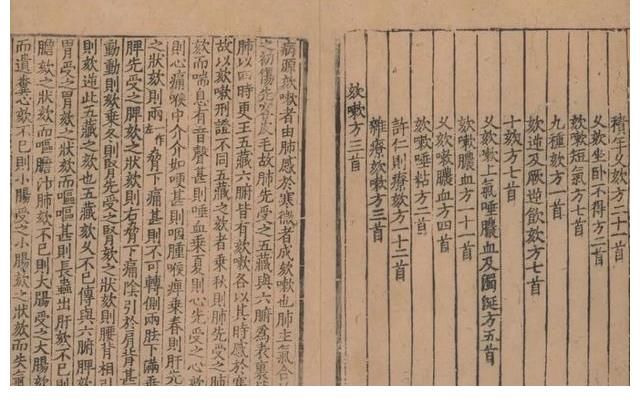 積年久欬方二十一首
久欬坐卧不得方二首
欬嗽短氣方七首
九種欬方一首
欬逆及厥逆飲欬方七首
十欬方七首
久欬嗽上氣唾膿血及濁涎方五首
欬嗽膿血方一十一首
久欬嗽膿血方四首
欬嗽唾粘方二首
許仁則療欬嗽方一十二首
雜療欬嗽方三首
欬嗽方三首
病源欬嗽者由肺感於寒微者成欬嗽也肺主氣合
之初傷先客皮毛故肺先受之五藏與六腑爲表裏
肺以四時更王五藏六腑皆有欬嗽各以其時感於寒
故以欬嗽刑證不同五藏之欬者乘秋則肺先受之肺
欬而喘息有音聲甚則唾血乘夏則心先受之心欬
則心痛喉中介介如哽甚則咽腫喉痺乘春則肝先
之狀欬則兩一作左脅下痛甚則不可轉側兩胠下滿乘
脾先受之脾欬之狀欬則右脅下痛陰引於肩背甚
動動則欬乘冬則腎先受之腎欬之狀欬則腰背相引
則欬逆此五藏之欬也五藏欬久不已傳與六腑脾欬
胃受之胃欬之狀欬而嘔嘔甚則長蟲出肝欬不已則
膽欬之狀欬而嘔膽汁肺欬不已則大腸受之大腸
而遺糞心欬不已則小腸受之小腸欬之狀欬而失氣